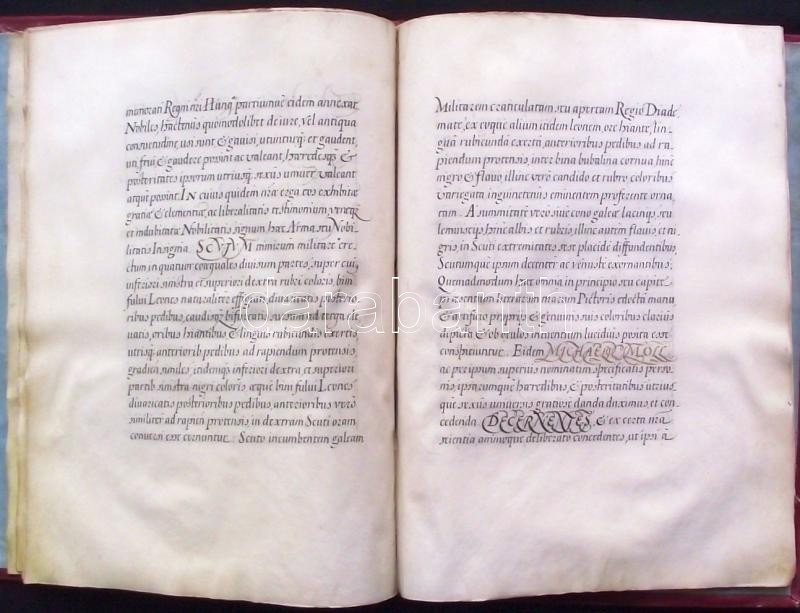 memorati Regni nri Hung partiumue eidem annexar
Nobiles, hactenus quomodolibet de iure, vel antiqua
consuetudine, usi sunt & gauisi, utunturq; et gaudent,
uti, frui & gaudere possint ac valeant, haeredesq; &
posteritates ipsorum utriusq; sexus uniuer valeant
atque possint. IN cuius quidem nrae erga eos exhibitae
gratiae & clementiae, ac liberalitatis testimonium
et indubitatae Nobilitatis signum haec Arma seu Nobi-
litatis Insignia. SCUTUM nimirum militare ere-
ctum in quatuor coaequales diuisum partes, super cui,
inferiori sinistra et superiori dextra rubri coloris, bini
fului Leones naturaliter effigiati, diuaricatis posterio-
ribus pedibus, caudisq; bifurcatis, sursum à tergo de-
uatis, oribus hiantibus & linguis rubicundis exertis
utrisq; anterioribus pedibus ad rapiendum protensis,
gradi similes; itidemque inferiori dextra et superiori
partib sinistra nigri coloris aeque bini fului Leones
diuaricatis posterioribus pedibus, anterioribus verò
similiter ad rapien protensis, in dextram Scuti oram
conuersi esse cernuntur. Scuto incumbentem galeam
Militarem craticulatam, seu apertam Regio Diade
mate, ex eoque alium itidem leonem, ore hiante, lin-
guâ rubicunda exerta, anterioribus pedibus ad ra-
piendum protensis, inter bina bubalina cornua hinc
nigro & flauo, illinc verò candido et rubro coloribus
variegata eminentem proferente orna-
tam. A summitate verò siue cono galeae lacinijs, seu
lemniscis hinc albis et rubris, illinc autem flauis, et ni-
gris, in Scuti extremitates sese placidè diffundentibus,
Scutumque ipsum decenter ac venustè exornantibus;
Quemadmodum haec omnia in principio seu capite
praesentium literarum nrarum Pictoris edocti manu
& artificio propriis & genuinis suis coloribus clarius
depicta & ob oculos intuentium lucidius posita esse
conspiciuntur. Eidem MICHAELI MOLL
ac per ipsum superius nominatim specificatis perso-
nis, ipsorumque haeredibus, & posteritatibus utrius-
que sexus uniuersis gratiosè danda duximus et con-
cedenda. DECERNENTES, & ex certa nra
scientia animoque deliberato concedentes, ut ipsi à
darabanth